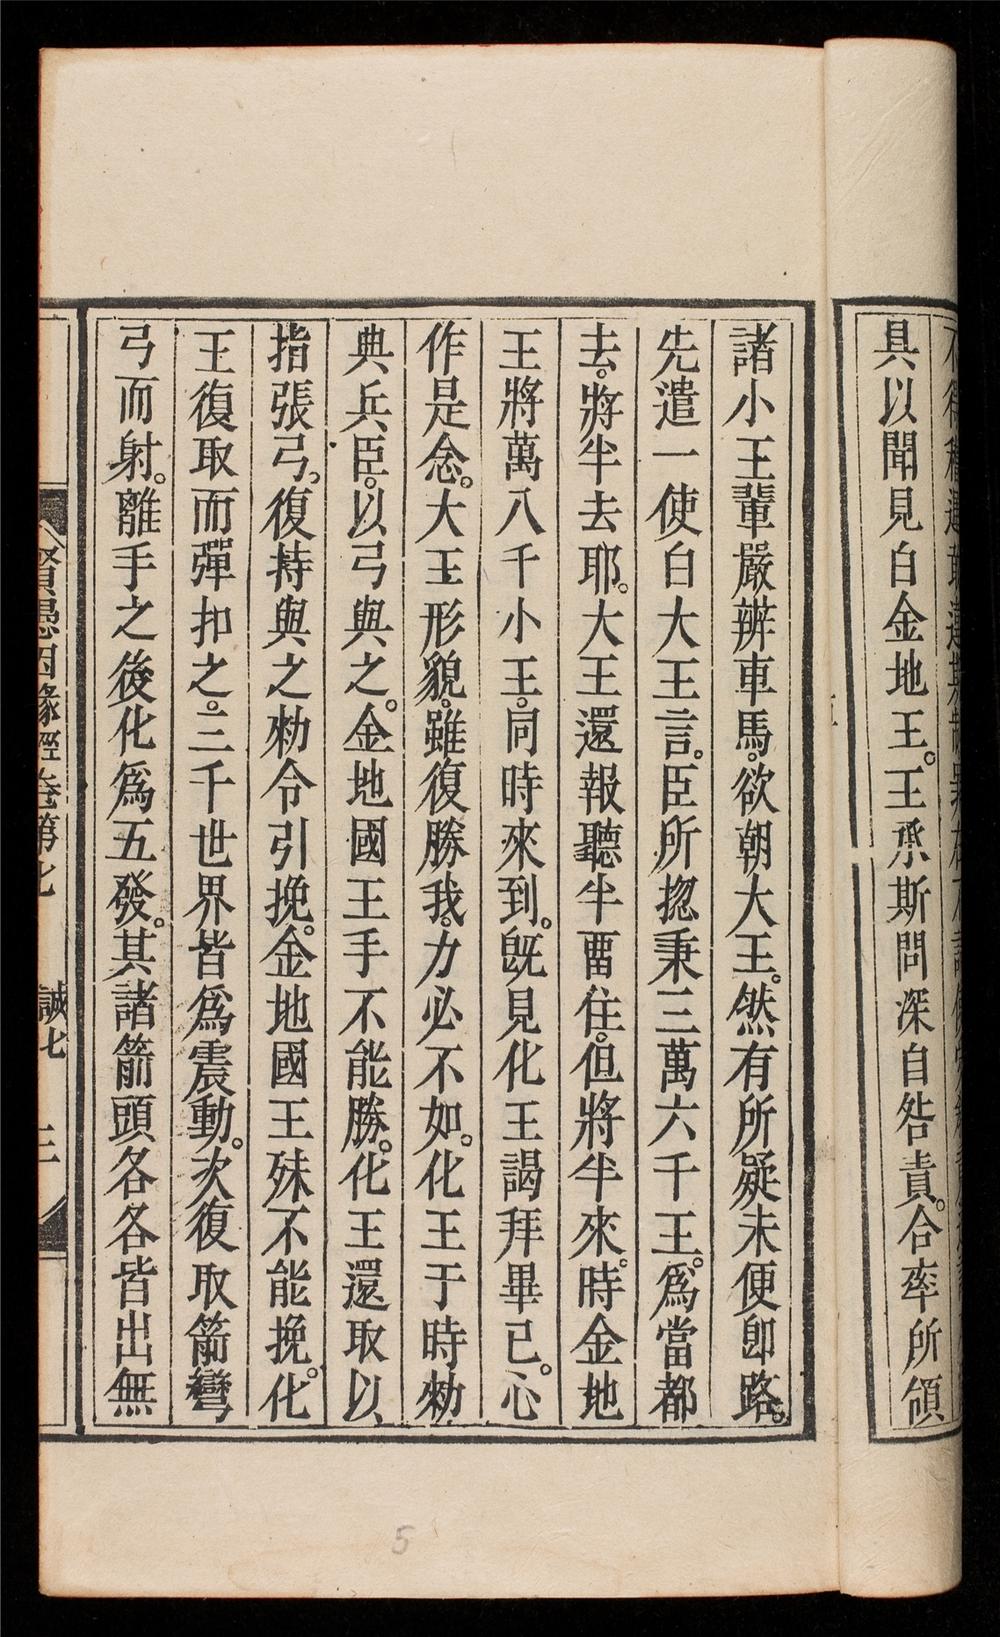 具以聞見白金地王。王承斯問深自咎責。合率所領
諸小王輩嚴辨車馬。欲朝大王。然有所疑未便卽路。
先遣一使白大王言。臣所揔秉三萬六千王。爲當都
去。將半去耶。大王還報聽半畱住。但將半來。時金地
王將萬八千小王。同時來到。旣見化王謁拜畢已。心
作是念。大王形貌。雖復勝我。力必不如。化王于時勑
典兵臣。以弓與之。金地國王手不能勝。化王還取以
指張弓。復持與之勑令引挽。金地國王殊不能挽。化
王復取而彈扣之。三千世界皆爲震動。次復取箭彎
弓而射。離手之後化爲五發。其諸箭頭各各皆出無
賢愚因緣經卷第七 誠七 三
5